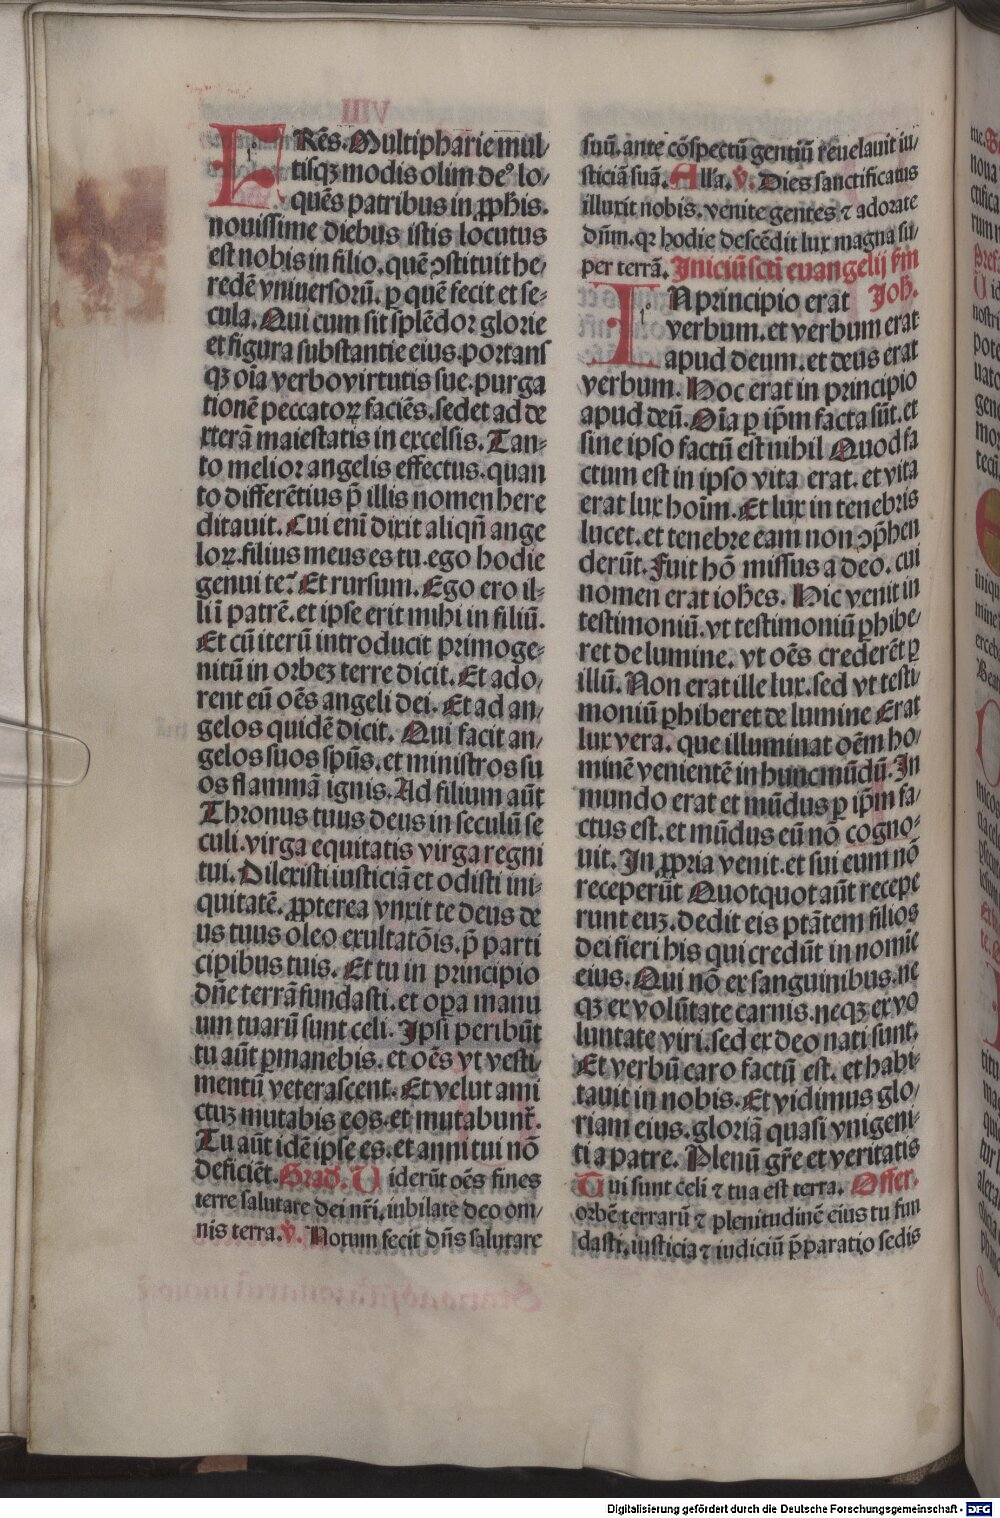 FRēs. Multipharie mul/
tisqꝫ modis olim deꝰ lo/
quēs patribus in ꝓphis.
nouissime diebus istis locutus
est nobis in filio. quē ↄstituit he/
redē vniuersorū. ꝑ quē fecit et se/
cula. Qui cum sit splēdor glorie
et figura substantie eius. portans
qꝫ oīa verbo virtutis sue. purga
tionē peccatoꝝ faciēs. sedet ad de
xterā maiestatis in excelsis. Tan-
to melior angelis effectus. quan
to differētius p̄ illis nomen here
ditauit. Cui enī dixit aliqn̄ ange
loꝝ. filius meus es tu. ego hodie
genui te. Et rursum. Ego ero il-
li ī patrē. et ipse erit mihi in filiū.
Et cū iterū introducit primoge-
nitū in orbeꝫ terre dicit. Et ado/
rent eū oēs angeli dei. Et ad an/
gelos quidē dicit. Qui facit an/
gelos suos spūs. et ministros su
os flammā ignis. Ad filium aūt
Thronus tuus deus in seculū se
culi. virga equitatis virga regni
tui. Dilexisti iusticiā et odisti ini-
quitatē. ꝓpterea vnxit te deus de
us tuus oleo exultatōis. p̄ parti
cipibus tuis. Et tu in principio
dn̄e terrā fundasti. et oꝑa manu
um tuarū sunt celi. Ipsi peribūt
tu aūt ꝑmanebis. et oēs vt vesti
mentū veterascent. Et velut ami
ctuꝫ mutabis eos. et mutabunt̄.
Tu aūt idē ipse es. et anni tui nō
deficiēt. Grad. Uiderūt oēs fines
terre salutare dei nr̄i. iubilate deo om/
nis terra. v. Notum fecit dn̄s salutare
suū. ante cōspectū gentiū reuelauit iu/
sticiā suā. Alla. v. Dies sanctificatus
illuxit nobis. venite gentes ⁊ adorate
dn̄m. qꝛ hodie descēdit lux magna su
per terrā. Iniciū scti euangelij sm̄
IN principio erat Joh.
verbum. et verbum erat
apud deum. et deus erat
verbum. Hoc erat in principio
apud deū. Oīa ꝑ ip̄m facta sūt. et
sine ipso factū est nihil Quod fa
ctum est in ipso vita erat. et vita
erat lux hoīm. Et lux in tenebris
lucet. et tenebre eam non ↄp̄hen
derūt. Fuit hō missus a deo. cui
nomen erat ioh̄es. Hic venit in
testimoniū. vt testimoniū ꝑhibe/
ret de lumine. vt oēs crederēt ꝑ
illū. Non erat ille lux. sed vt testi
moniū ꝑhiberet de lumine Erat
lux vera. que illuminat oēm ho/
minē venientē in hunc mūdū. In
mundo erat et mūdus ꝑ ip̄m fa/
ctus est. et mūdus eū nō cogno-
uit. In ꝓpria venit. et sui eum nō
receperūt Quotquot aūt recepe
runt euꝫ. dedit eis ptātem filios
dei fieri his qui credūt in nomīe
eius. Qui nō ex sanguinibus. ne
qꝫ ex volūtate carnis. neqꝫ ex vo
luntate viri. sed ex deo nati sunt.
Et verbū caro factū est. et habi-
tauit in nobis. Et vidimus glo/
riam eius. gloriā quasi vnigeni-
ti a patre. Plenū gr̄e et veritatis
Tui sunt celi ⁊ tua est terra. Offer.
orbē terrarū ⁊ plenitudinē eius tu fun
dasti. iusticia ⁊ iudiciū p̄paratio sedis
Digitalisierung gefördert durch die Deutsche Forschungsgemeinschaft - DFG